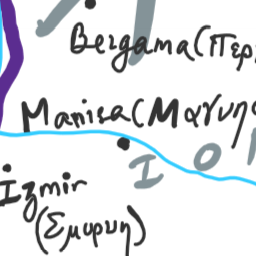 Bergama(Περ
Manisa(Μαγνη
I O
İzmir
(Σμυρνη)